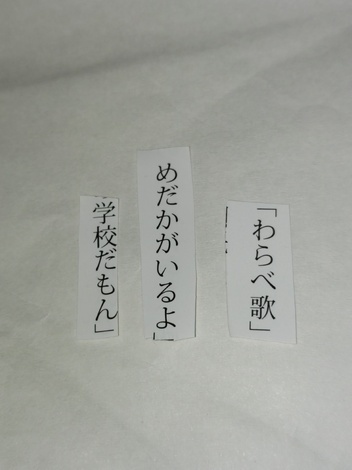 「わらべ歌」
めだかがいるよ」
学校だもん」